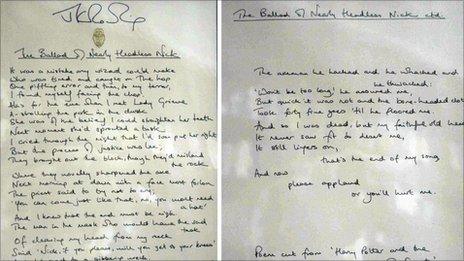 JK Rowling
The Ballad of Nearly Headless Nick
It was a mistake any wizard could make
Who was tired and caught on the hop
One piffling error and then, to my terror,
I found myself facing the chop.
Alas for the eve when I met Lady Grieve
A-strolling the park in the dusk!
She was of the belief I could straighten her teeth
Next moment she'd sprouted a tusk.
I cried through the night that I'd soon put her right
But the process of justice was lax;
They brought out the block, though they'd mislaid
the rock
Where they usually sharpened the axe.
Next morning at dawn with a face most forlorn
The priest said to try not to cry,
"You can come just like that, no, you won't need
a hat"
And I knew that the end must be nigh.
The man in the mask who would have the sad
task
Of cleaving my head from my neck
Said 'Nick, if you please, will you get to your knees'
The Ballad of Nearly Headless Nick ctd
The axeman he hacked and he whacked and
he thwacked;
'Don't be too long' he assured me,
But quick it was not and the bone-headed clot
Took forty five goes 'til he floored me.
And so I was dead, but my faithful old head
It never saw fit to desert me,
It still lingers on,
that's the end of my song
And now
please applaud
or you'll hurt me.
Poem cut from 'Harry Potter and the